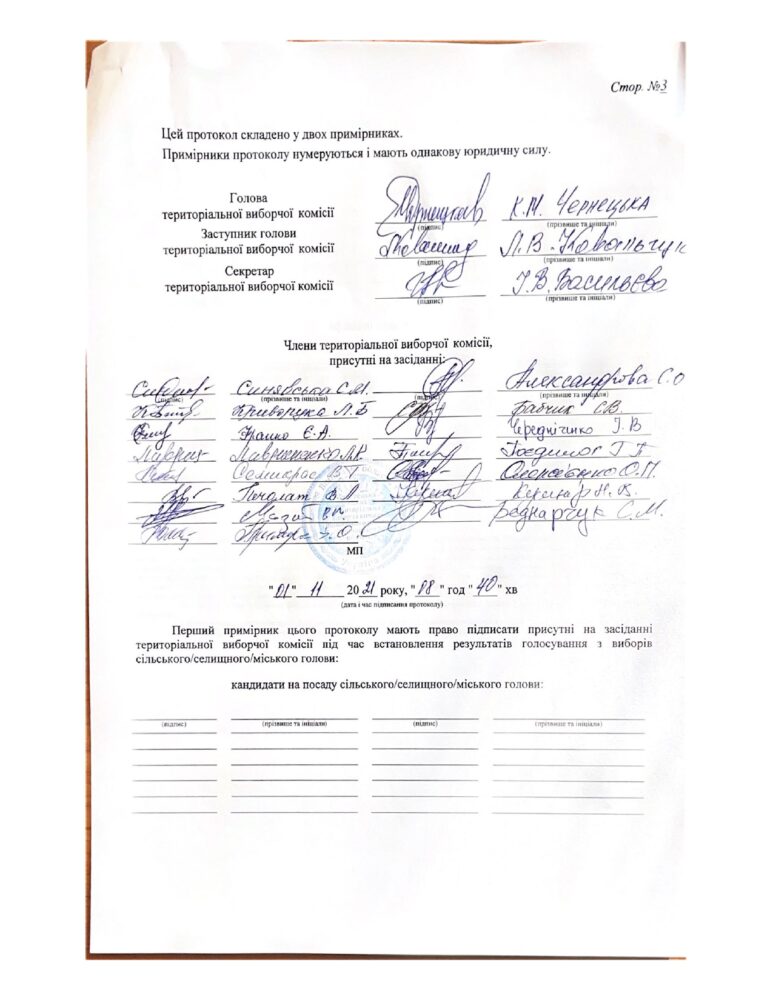 Стор. №3
Цей протокол складено у двох примірниках.
Примірники протоколу нумеруються і мають однакову юридичну силу.
Голова
територіальної виборчої комісії К.М. Чернецька
(підпис) (прізвище та ініціали)
Заступник голови
територіальної виборчої комісії Л.В. Ковальчук
(підпис) (прізвище та ініціали)
Секретар
територіальної виборчої комісії І.В. Васильєва
(підпис) (прізвище та ініціали)
Члени територіальної виборчої комісії,
присутні на засіданні:
Синявська С.М. Александрова С.О
(підпис) (прізвище та ініціали) (підпис) (прізвище та ініціали)
Криворучко Л.Б Бабчик С.В.
Є.А. Чередніченко І.В
Г.П
Семикрас В.Т. О.П.
В.Л Н.В.
Беднарчук С.М.
МП
"01" 11 2021 року, "08" год "40" хв
(дата і час підписання протоколу)
Перший примірник цього протоколу мають право підписати присутні на засіданні
територіальної виборчої комісії під час встановлення результатів голосування з виборів
сільського/селищного/міського голови:
кандидати на посаду сільського/селищного/міського голови:
(підпис) (прізвище та ініціали) (підпис) (прізвище та ініціали)